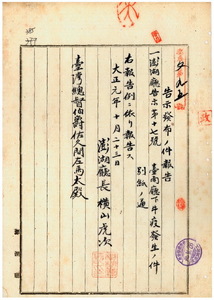 告示發布ノ件報告
一澎湖廳告示第十七號 臺南廳下牛疫發生ノ件
別紙ノ通
右報告例ニ依リ報告ス
大正元年十月二十三日
澎湖廳長 橫山虎次
臺灣總督伯爵佐久間左馬太殿